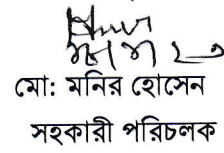 মো: মনির হোসেন
সহকারী পরিচলক